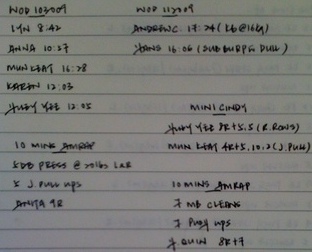 WOD 103009
LYN 8:42
ANNA 10:27
MUN KEAT 16:28
KAREN 12:03
YUEY YEE 12:05
10 MINS AMRAP
5 DB PRESS @ 20lbs L&R
5 J. PULL UPS
ANITA 9R
WOD 112009
ANDREW C 17:24 (KB@16kg)
HANS 16:06 (SUB BURPG PULL)
MINI CINDY
YUEY YEE 8R+5,5 (R.ROWS)
MUN KEAT 4R+5,10,2 (J.PULL)
10 MINS AMRAP
7 MB CLEANS
7 PUSH UPS
QUIN 8R+7